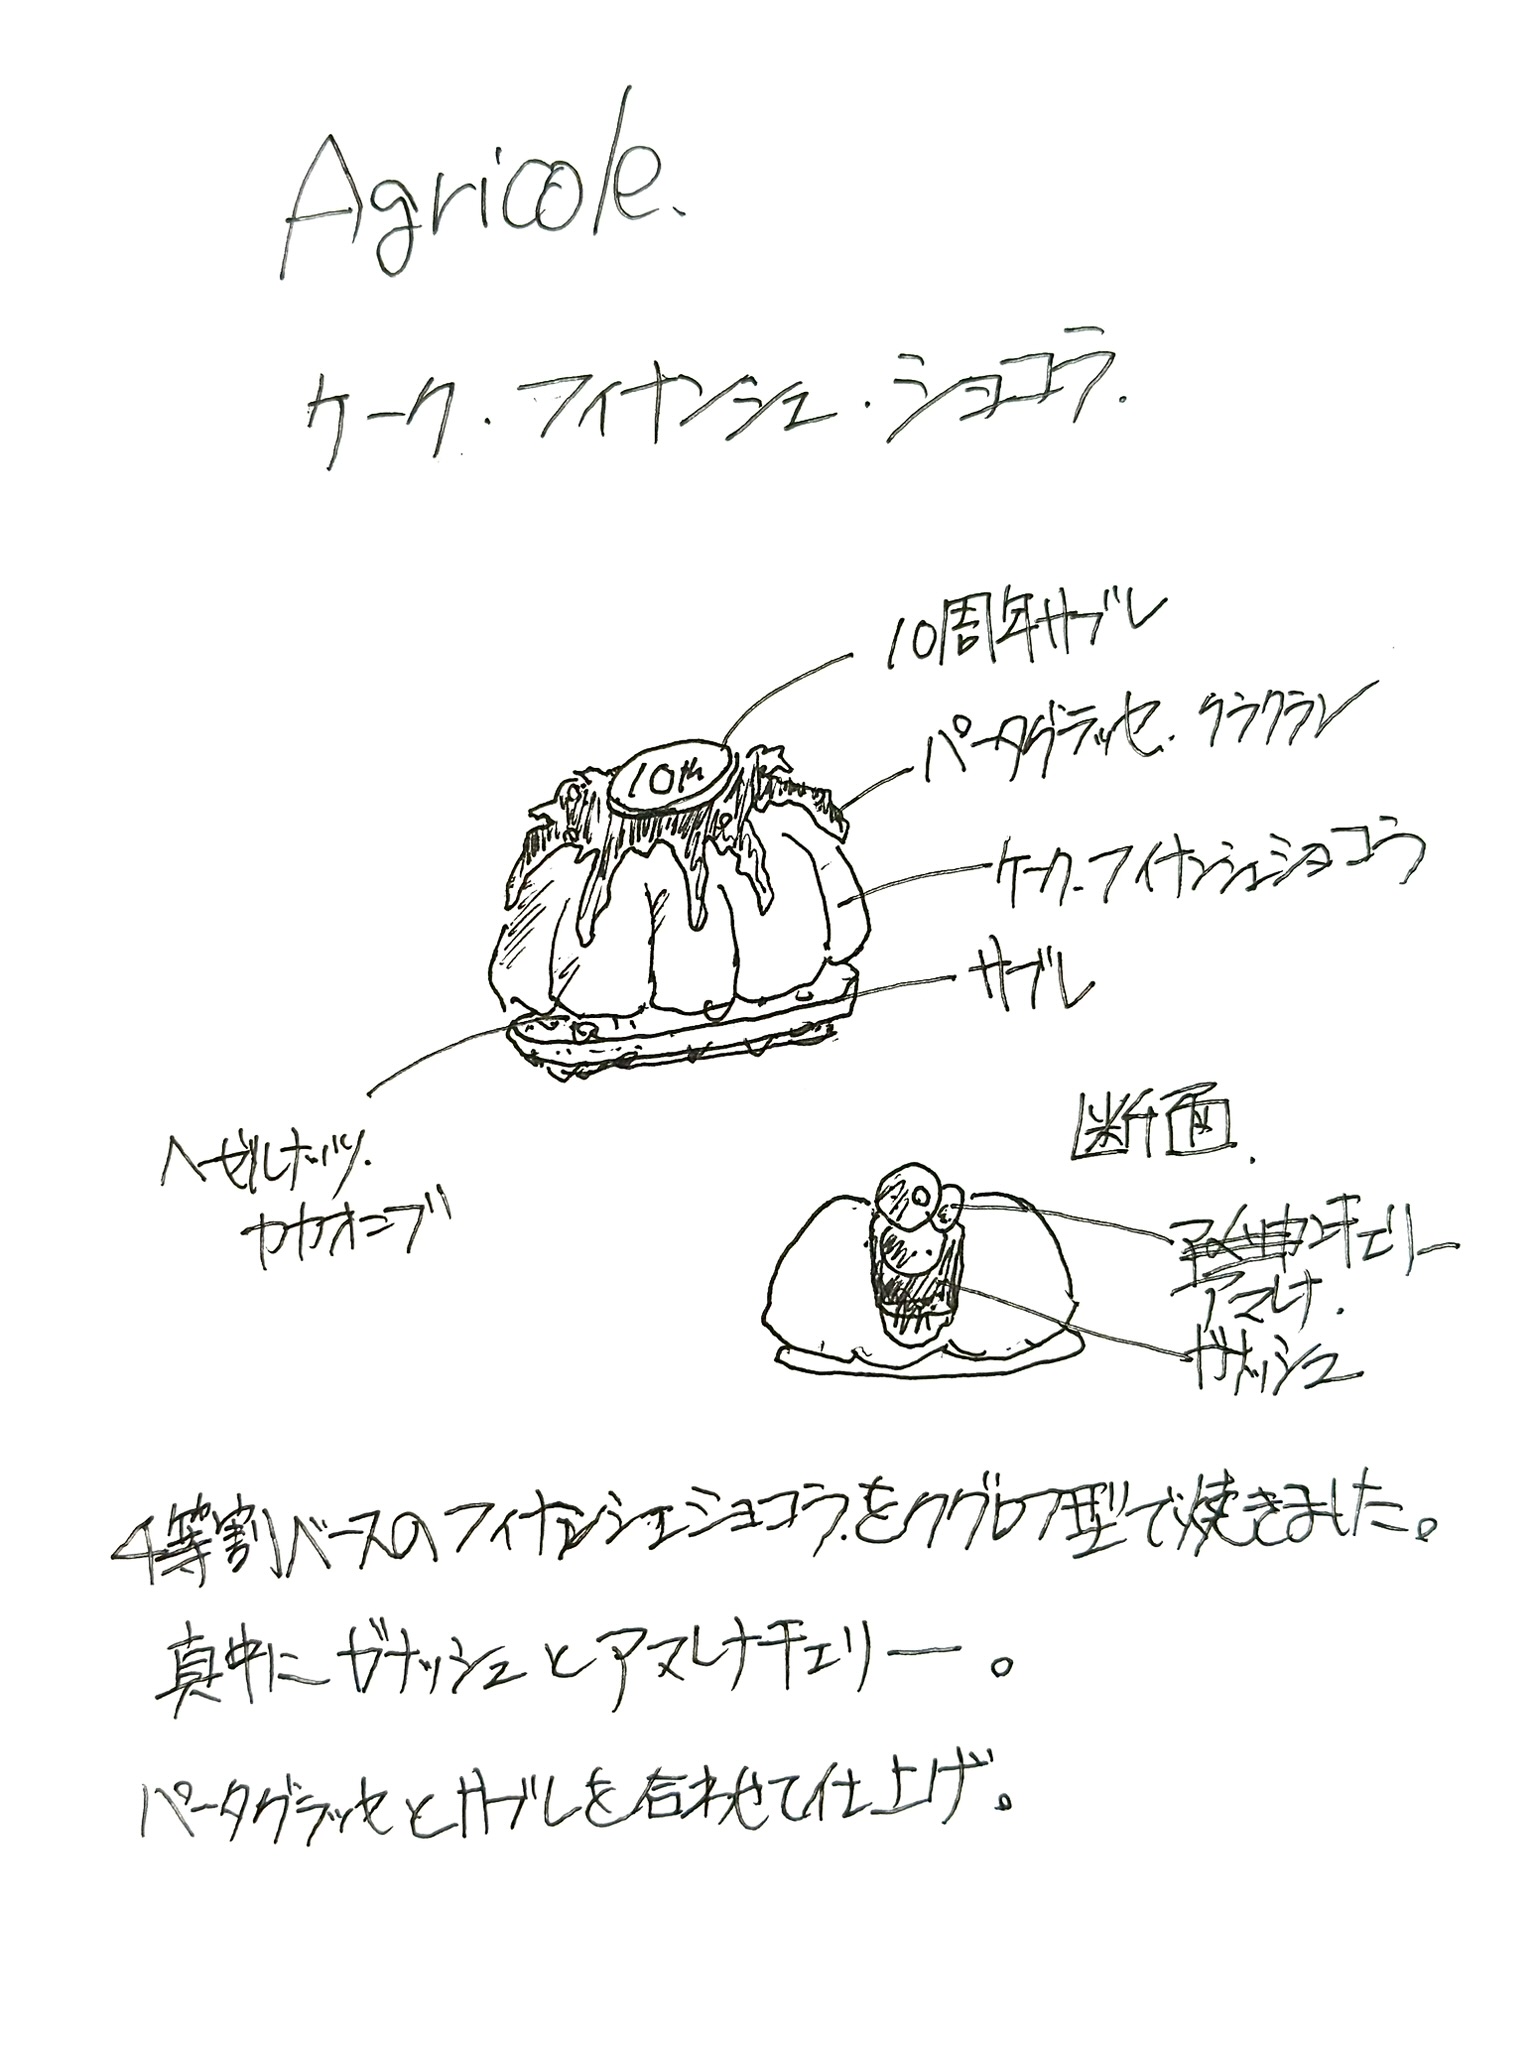 Agricole.
ケーク.フィナンシェ.ショコラ.
10周年サブレ
パータグラッセ.クラクラン
10th
ケーク.フィナンシェショコラ
サブレ
ヘーゼルナッツ.
カカオニブ
断面.
チェリー
アマレナ.
ガナッシュ
4等割ベースのフィナンシェショコラ.をクグロフ型で焼きました。
真中にガナッシュとアマレナチェリー。
パータグラッセとサブレを合わせて仕上げ。